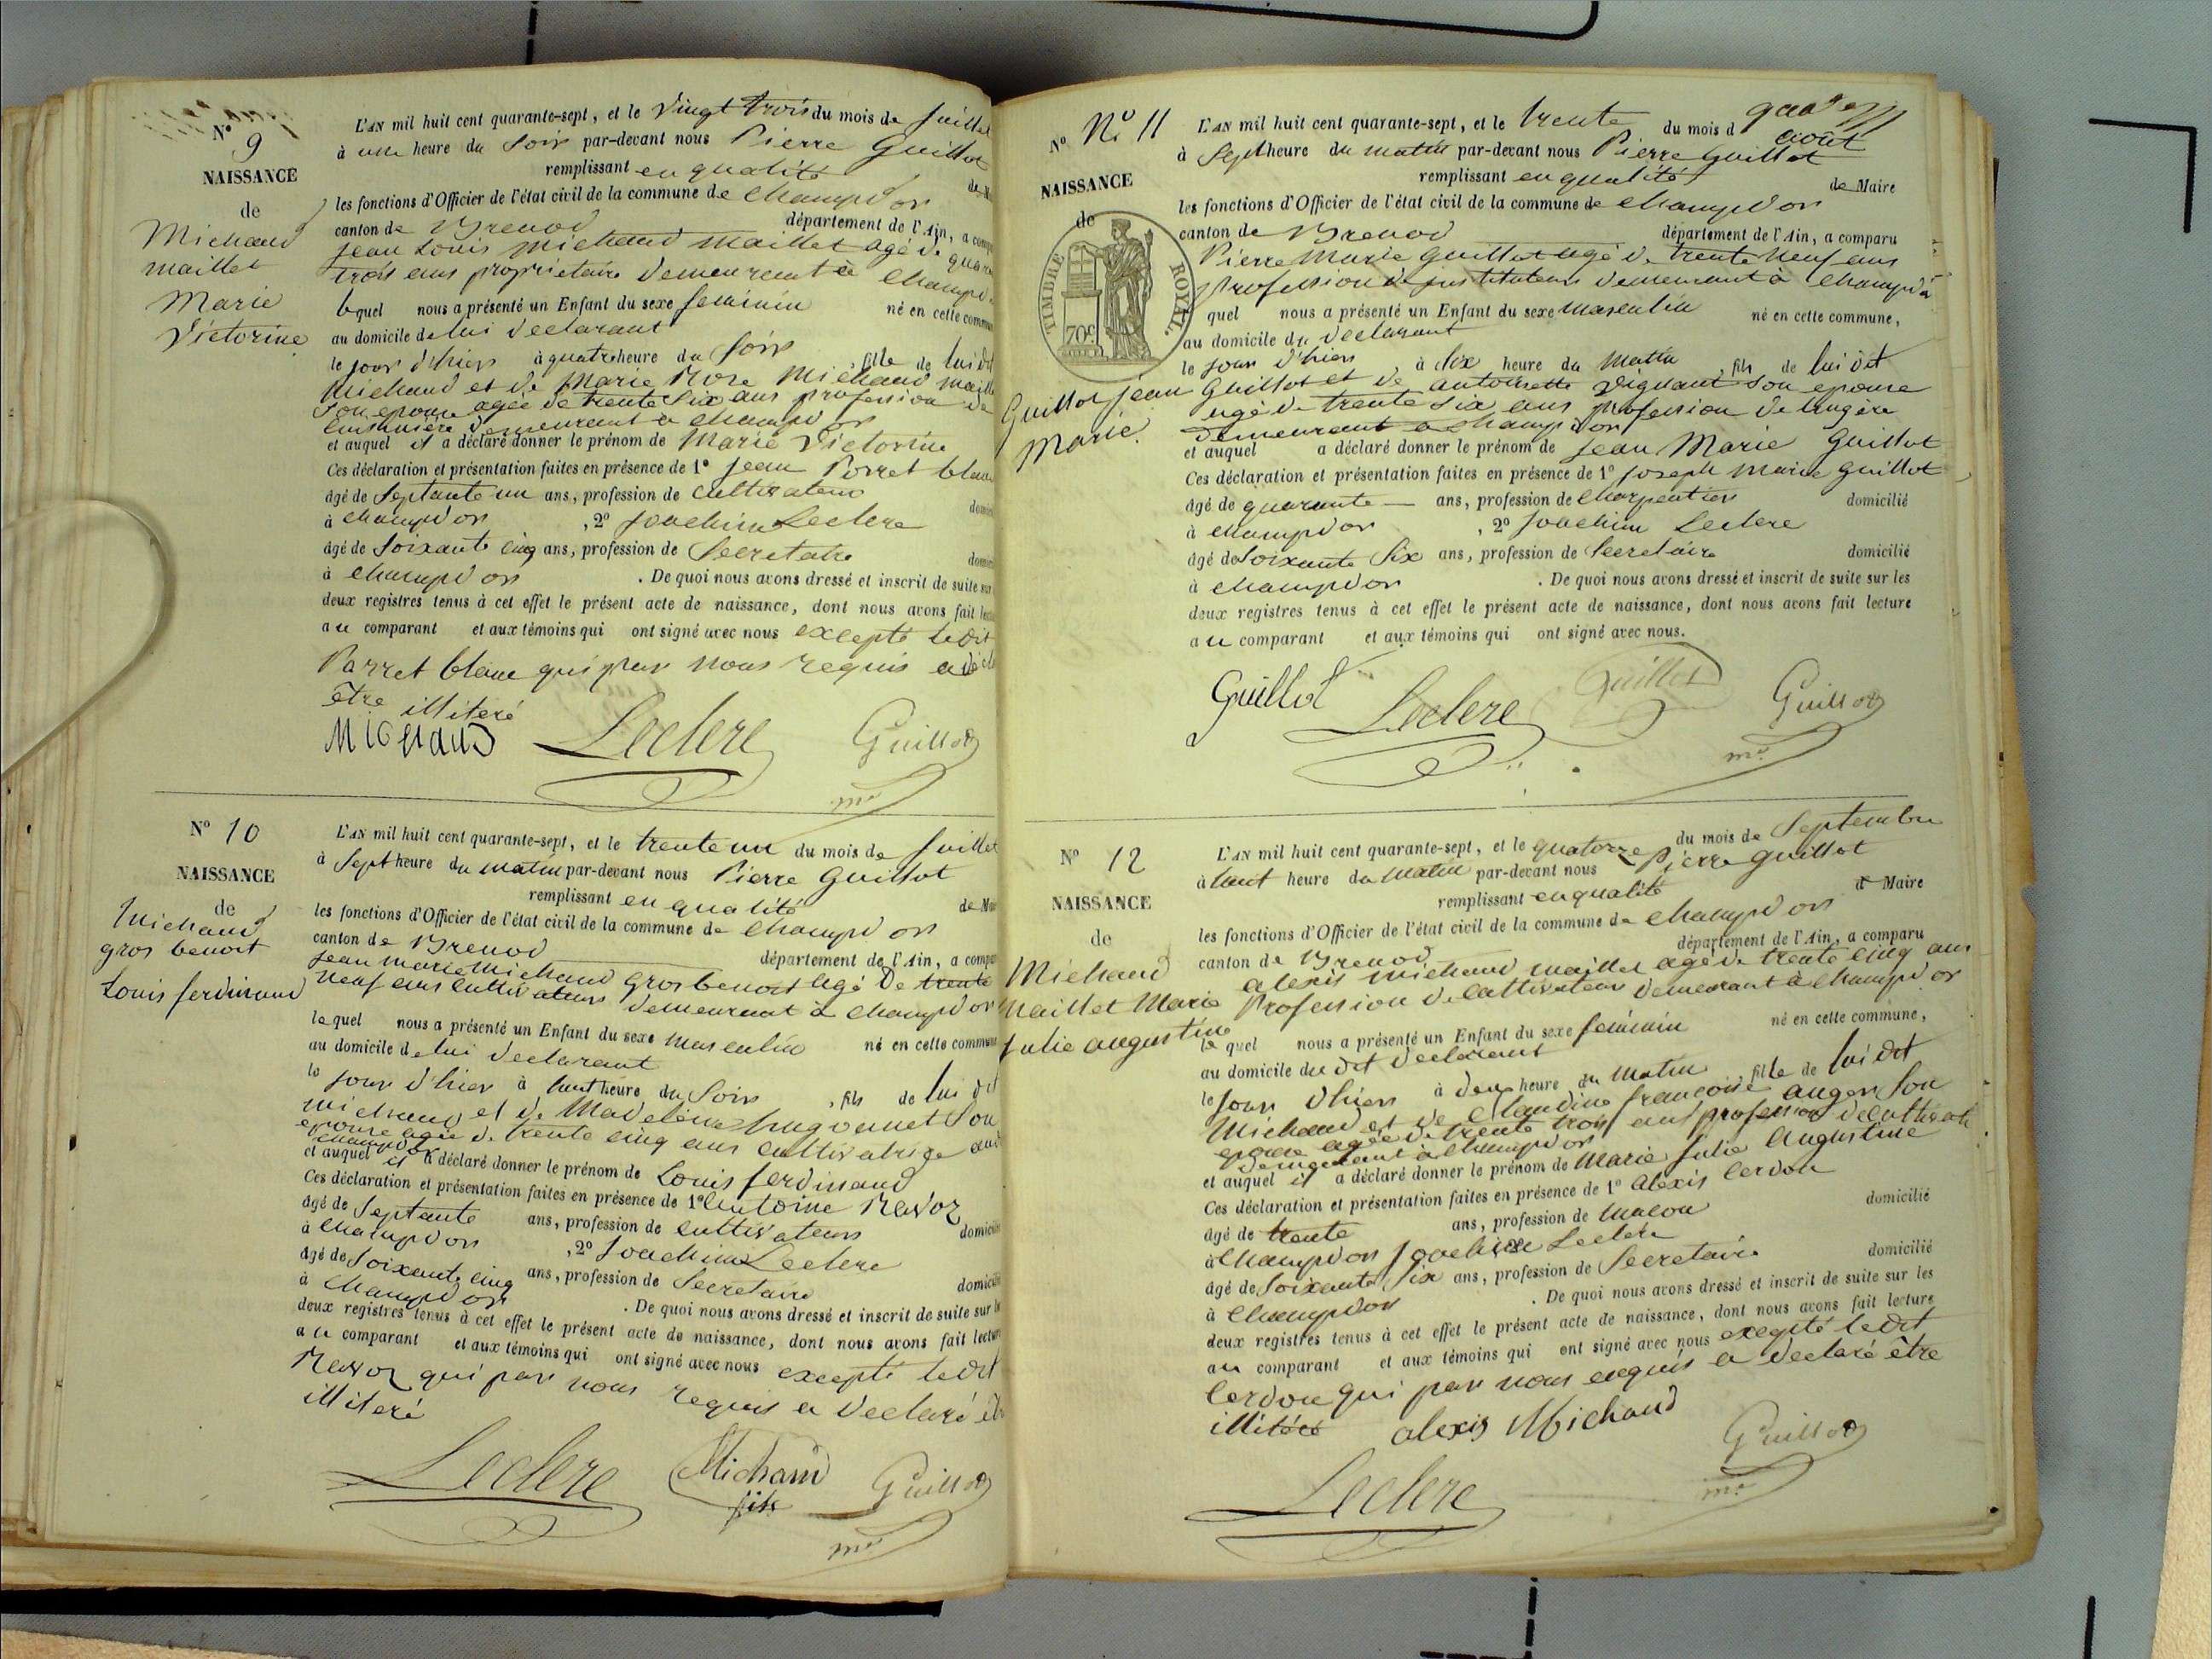 N° 9
NAISSANCE
de
Michaud
maillet
Marie
Victorine
L'AN mil huit cent quarante-sept, et le Vingt trois du mois de juillet
à une heure du Soir par-devant nous Pierre Guillot
remplissant en qualité
les fonctions d'Officier de l'état civil de la commune de Champdor
canton de Brenod département de l'Ain, a comp
jean Louis Michaud Maillet agé de quara
trois ans propriétaire demeurant à Champd
lequel nous a présenté un Enfant du sexe feminin né en cette commu
au domicile de lui declarant
le jour d'hier à quatre heure du Soir, fille de lui dit
Michaud et de Marie Rose Michaud maille
Son epouse agée de trente Six ans profession de
Cuisiniere demeurant a Champdor
et auquel il a déclaré donner le prénom de Marie Victorine
Ces déclaration et présentation faites en présence de 1° jean Porret blanc
âgé de Septante un ans, profession de Cultivateur
à Champdor , 2° joachim Leclere
âgé de Soixante cinq ans, profession de Secretaire
à Champdor . De quoi nous avons dressé et inscrit de suite sur
deux registres tenus à cet effet le présent acte de naissance, dont nous avons fait lect
au comparant et aux témoins qui ont signé avec nous excepté ledit
Parret blanc qui par nous requis a décl
être illiteré
Michaud Leclere Guillot
mre
N° 10
NAISSANCE
de
Michaud
gros benoit
Louis ferdinand
L'AN mil huit cent quarante-sept, et le trente un du mois de juillet
à Sept heure du matin par-devant nous Pierre Guillot
remplissant en qualité de Mai
les fonctions d'Officier de l'état civil de la commune de Champdor
canton de Brenod département de l'Ain, a compa
jean marie Michaud gros benoit agé de trente
neuf ans Cultivateur demeurant à Champdor
lequel nous a présenté un Enfant du sexe masculin né en cette commun
au domicile de lui declarant
le jour d'hier à huit heure du Soir , fils de lui dit
michaud et de Madeleine hugonnet Son
epouse agée de trente cinq ans cultivatrice aud
Champdor
et auquel il a déclaré donner le prénom de Louis ferdinand
Ces déclaration et présentation faites en présence de 1° Antoine Ravoz
âgé de Septante ans, profession de Cultivateur domicilié
à Champdor , 2° Joachim Leclere
âgé de Soixante cinq ans, profession de Secretaire domicilié
à Champdor . De quoi nous avons dressé et inscrit de suite sur
deux registres tenus à cet effet le présent acte de naissance, dont nous avons fait lecture
au comparant et aux témoins qui ont signé avec nous excepté ledit
Ravoz qui par nous requis a declaré êtr
illiteré
Leclere Michaud fils Guillot
mre
N° N° 11
NAISSANCE
de
TIMBRE ROYAL
70c
Guillot jean
Marie.
L'AN mil huit cent quarante-sept, et le trente du mois d
août
à Sept heure du matin par-devant nous Pierre Guillot
remplissant en qualité de Maire
les fonctions d'Officier de l'état civil de la commune de Champdor
canton de Brenod département de l'Ain, a comparu
Pierre Marie Guillot agé de trente neuf ans
Profession d'instituteur demeurant à Champdor
quel nous a présenté un Enfant du sexe masculin né en cette commune,
au domicile du declarant
le jour d'hier à Six heure du matin , fils de lui dit
Guillot et de antoinette Viguant Son epouse
agé de trente Six ans profession de lingère
demeurant a Champdor
et auquel a déclaré donner le prénom de Jean Marie Guillot
Ces déclaration et présentation faites en présence de 1° joseph Marie Guillot
âgé de quarante — ans, profession de Charpentier domicilié
à Champdor , 2° Joachim Leclere
âgé de Soixante Six ans, profession de Secretaire domicilié
à Champdor . De quoi nous avons dressé et inscrit de suite sur les
deux registres tenus à cet effet le présent acte de naissance, dont nous avons fait lecture
au comparant et aux témoins qui ont signé avec nous.
Guillot Leclere Guillot Guillot
mre
N° 12
NAISSANCE
de
Michaud
Maillet Marie
julie augustine
L'AN mil huit cent quarante-sept, et le quatorze du mois de Septembre
à huit heure du matin par-devant nous Pierre Guillot
remplissant en qualité d Maire
les fonctions d'Officier de l'état civil de la commune de Champdor
canton de Brenod département de l'Ain, a comparu
alexis michaud maillet agé de trente cinq ans
Profession de Cultivateur demeurant à Champdor
le quel nous a présenté un Enfant du sexe feminin né en cette commune,
au domicile du dit declarant
le jour d'hier à deux heure du Matin , fille de lui dit
Michaud et de Claudine françoise auger Son
epouse agée de trente trois ans profession de cultivat
demeurant à Champdor
et auquel il a déclaré donner le prénom de Marie julie Augustine
Ces déclaration et présentation faites en présence de 1° Alexis Cerdon
âgé de trente ans, profession de Macon domicilié
à Champdor Joachim Leclere
âgé de Soixante Six ans, profession de Secretaire domicilié
à Champdor . De quoi nous avons dressé et inscrit de suite sur les
deux registres tenus à cet effet le présent acte de naissance, dont nous avons fait lecture
au comparant et aux témoins qui ont signé avec nous excepté ledit
Cerdon qui par nous enquis a declaré être
illitéré alexis Michaud Guillot
mre
Leclere